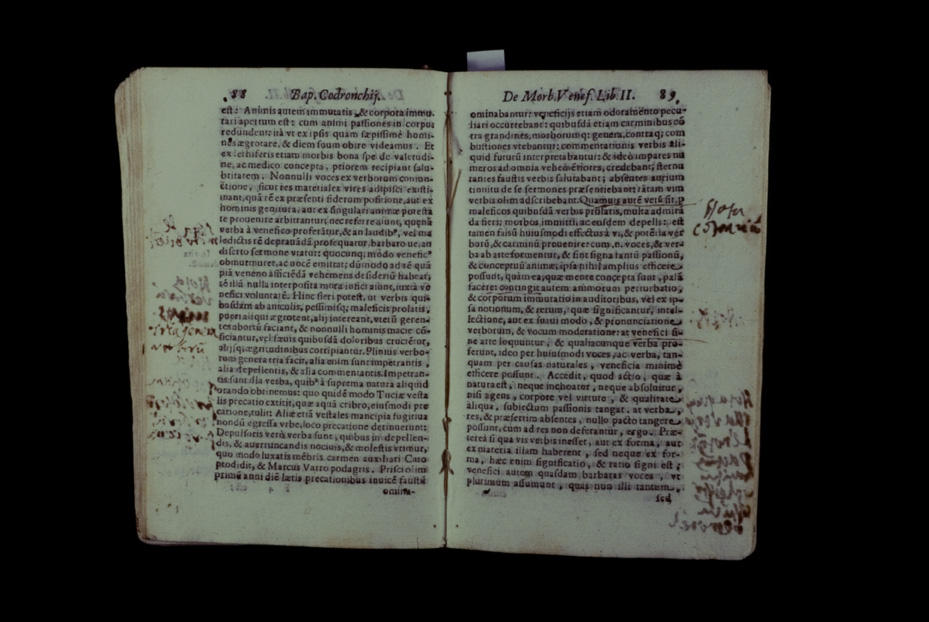 88 Bap. Codronchij.
est: Animis autem immutatis, & corpora immu-
tari apertum est: cum animi passiones in corpus
redundent: ità vt ex ipsis quam sæpissimè homi-
nes ægrotare, & diem suum obire videamus. Et
ex lethiferis etiam morbis bona spe de valetudi-
ne, ac medico concepta, priorem recipiant salu-
britatem. Nonnulli voces ex verborum coniun-
ctione, sicut res materiales vires adipisci existi-
mant, quà rē ex præsenti siderum positione, aut ex
hominis genitura, aut ex singulari animæ potesta
te prouenire arbitrantur, nec referre aiunt, quęnā
verba à venefico proferātur, & an laudib⁹, vel ma
ledictis rē deprauādā prosequatur, barbaro ue, an
diserto sermone vtatur: quocunq; modo venefic⁹
obmurmuret, ac vocē emittat; dūmodo ad rē quā
piā veneno afficiēdā vehemens desideriū habeat,
se illā nulla interposita mora inficiāiunt, iuxtà ve
nefici voluntatē. Hinc fieri potest, vt verbis qui-
busdam ab aniculis, pessimisq; maleficis prolatis,
pueri alij quì ægrotent, alij intereant, vterū geren-
tes abortū faciant, & nonnulli hominis macie cō-
ficiantur, vel sæuis quibusdā doloribus crucientur,
alijsq; ægritudinibus corripiantur. Plinius verbo-
rum genera tria facit, alia enim sunt impetrantis,
alia depellentis, & alia commentantis. Impetran-
tis sunt illa verba, quib⁹ à suprema natura aliquid
orando obtinemus: quo quidē modo Tuciæ vesta
lis precatio extitit, quæ aquā cribro, eiusmodi pre
catione, tulit. Aliæ etiā vestales mancipia fugitiua
nondū egressa vrbe, loco precatione detinuerunt:
Depulsoris verò verba sunt, quibus in depellen-
dis, & auerruncandis nociuis, & molestis vtimur,
quo modo luxatis mēbris carmen auxiliari Cato
prodidit, & Marcus Varro podagris. Prisci olim
primū anni diē lætis precationibus inuicē faustū
omina-
De Morb. Venef. Lib. II. 89
ominabantur: veneficijs etiam odoramēto pecu-
liari occurrebant: quibusdā etiam carminibus cō
tra grandines, morborumq; genera, contraq; com
bustiones vtebantur: commentationis verbis ali-
quid futurū interpretabantur: & ideò impares nu
meros ad omnia vehemētiores, credebant; sternu
tantes faustis verbis salutabant; absentes aurium
tinnitu de se sermones præsentiebant: tātam vim
verbis olim adscribebant. Quamuis autē verū sit, p
maleficos quibusdā verbis prolatis, multa admirā
da fieri; morbos immitti, ac eosdem depelli: est
tamen falsū huiusmodi effectus à vi, & potētia ver
borū, & carminū prouenire: cum n. voces, & ver-
ba ab arte formentur, & sint signa tantū passionū,
& conceptuū animæ; ipsa nihil amplius efficere
possunt, quàm ea, quæ mente concepta sunt, palā
facere: contingit autem animorum perturbatio,
& corporum immutatio in auditoribus, vel ex ip-
sa notionum, & rerum, quæ significantur, intel-
lectione, aut ex suaui modo, & pronunciatione
verborum, & vocum moderatione: at venefici si-
ne arte loquuntur, & qualiacunque verba pro-
ferunt, ideo per huiusmodi voces, ac verba, tan-
quam per causas naturales, veneficia minimè
efficere possunt. Accedit, quod actio, quæ à
natura est, neque inchoatur, neque absoluitur,
nisi agens, corpore vel virtute, & qualitate
aliqua, subiectum passionis tangat. at verba,
res, & præsertim absentes, nullo pacto tangere
possunt, cum ad res non deferantur, ergo. Præ-
tereà si qua vis verbis inesset, aut ex forma, aut
ex materia illam haberent, sed neque ex for-
ma, hæc enim significatio, & ratio signi est;
venefici autem quasdam barbaras voces, vt
plurimum assumunt, quas non illi tantum,
sed